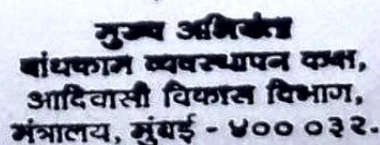 मुख्य अभियंता
बांधकाम व्यवस्थापन कक्ष,
आदिवासी विकास विभाग,
मंत्रालय, मुंबई - ४०० ०३२.